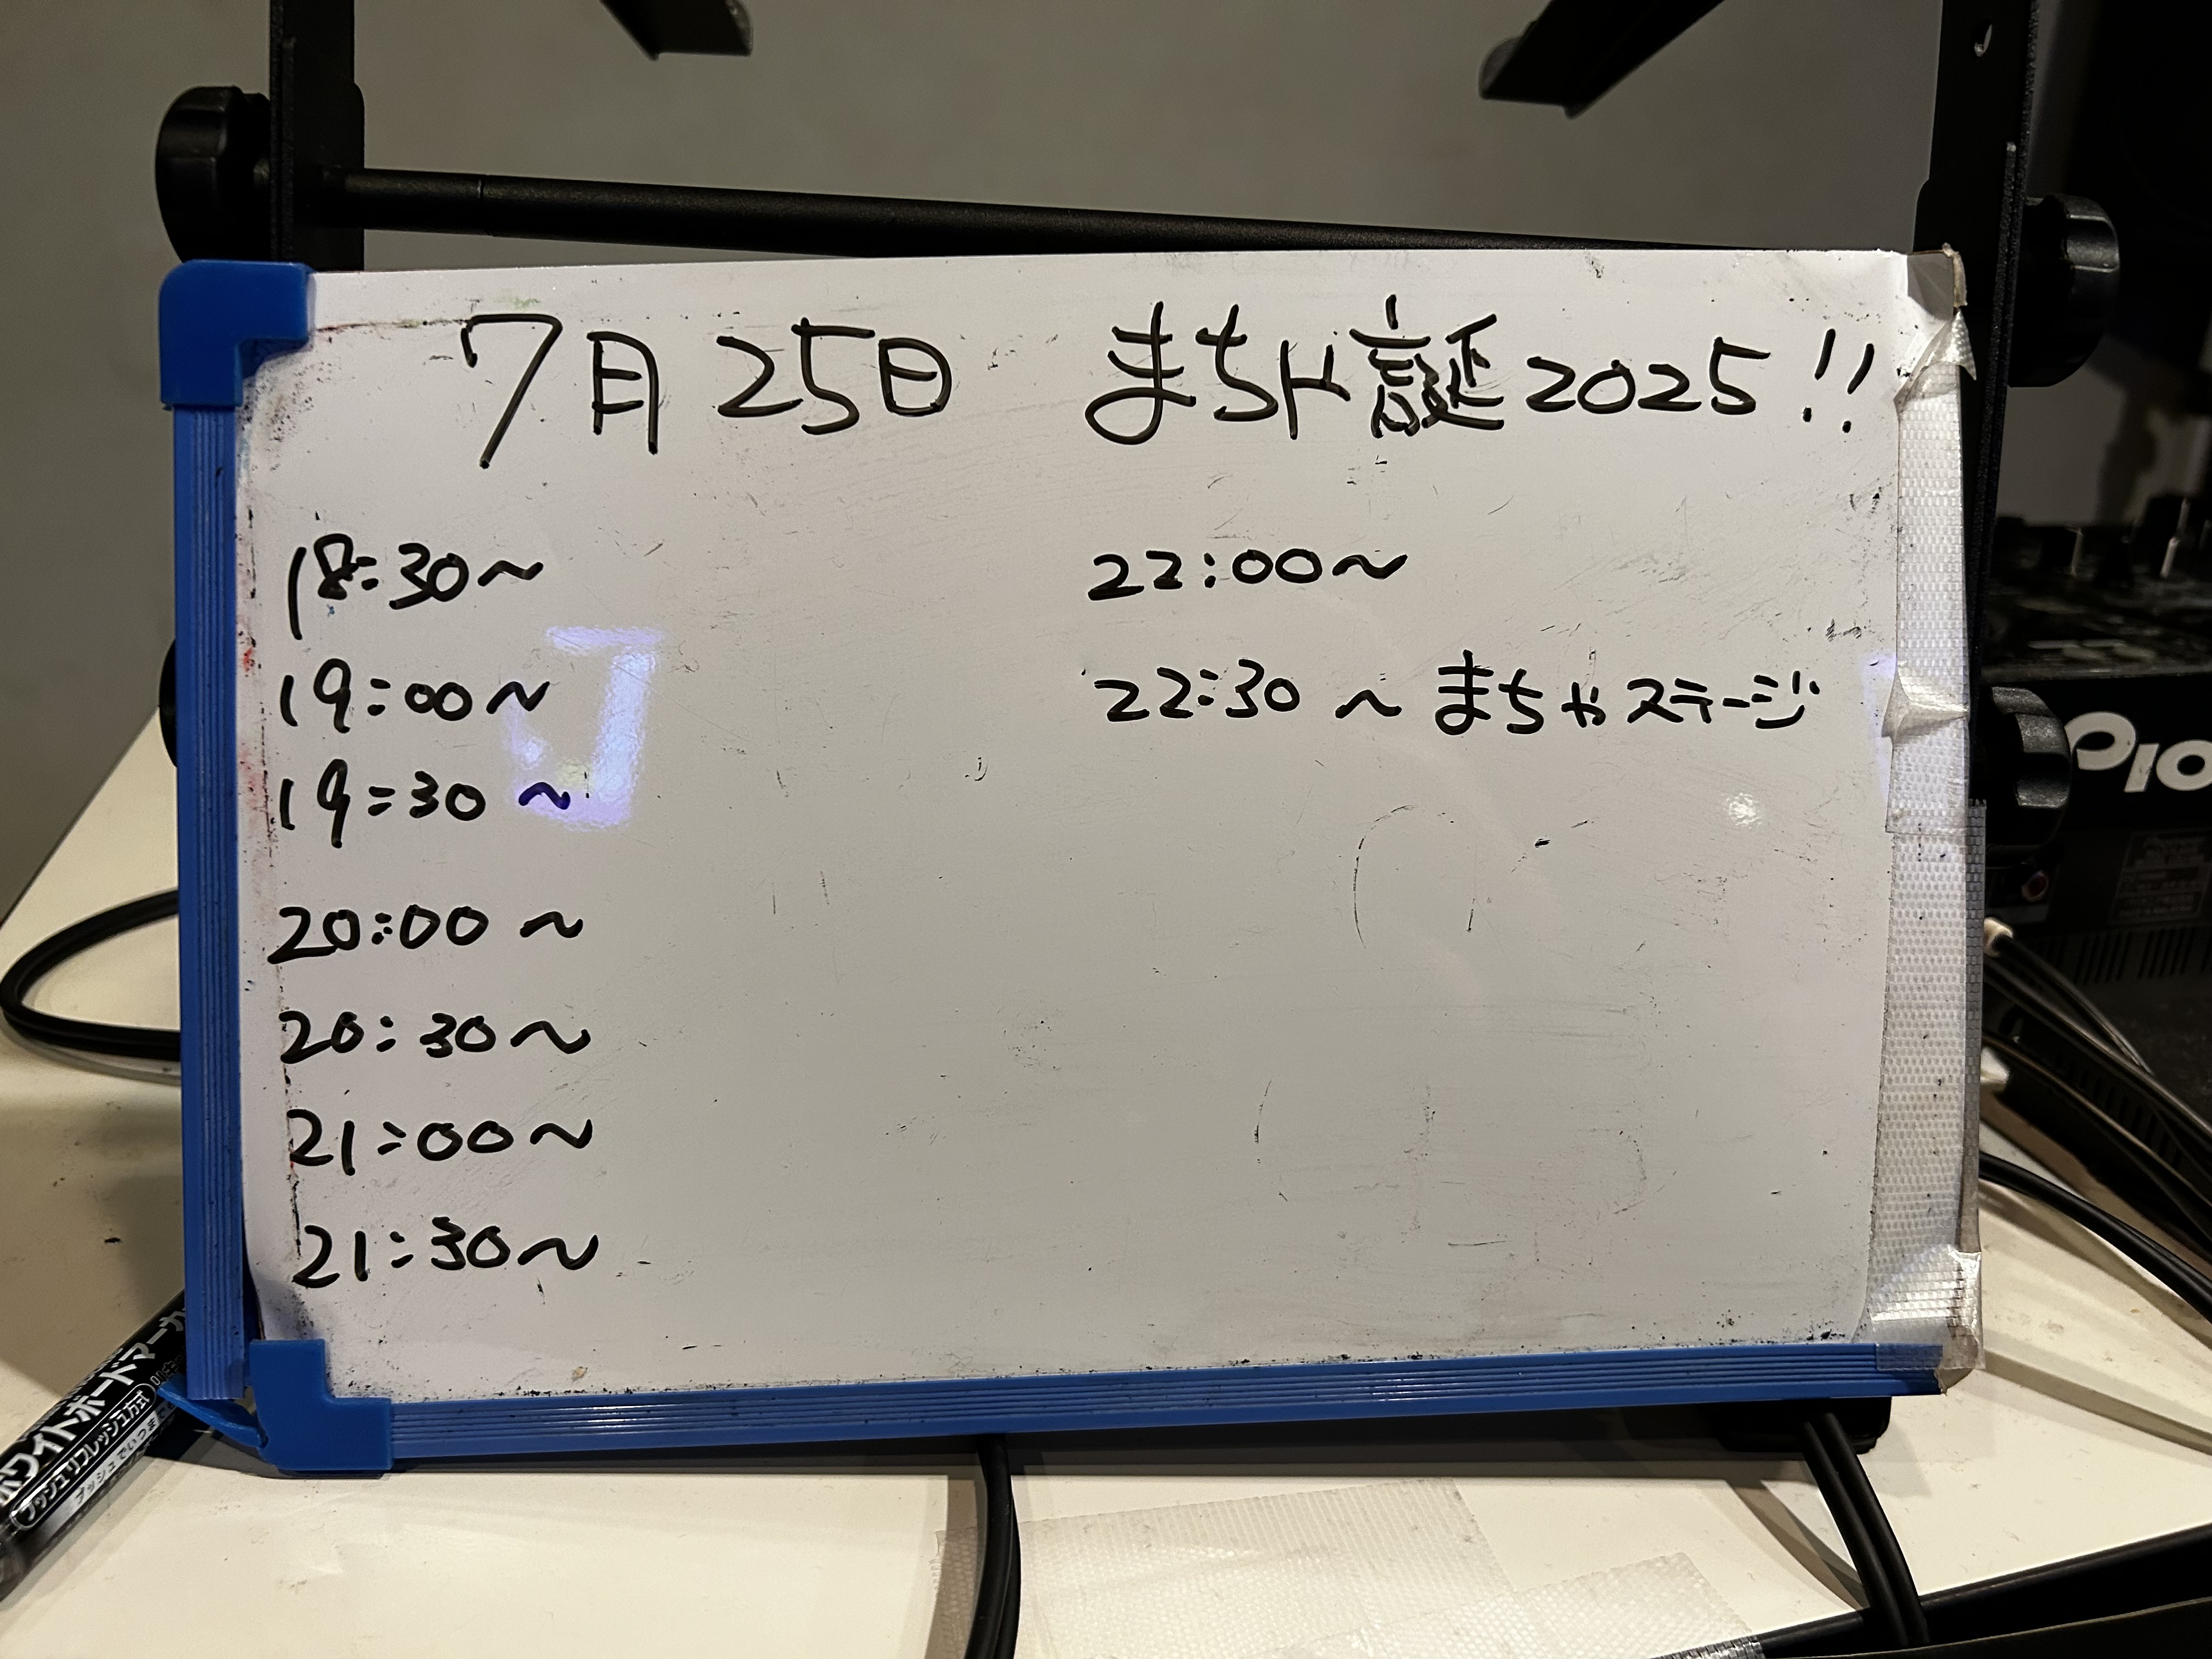 7月25日 まちゃ誕2025!!
18:30~
19:00~
19:30~
20:00~
20:30~
21:00~
21:30~
22:00~
22:30~まちゃステージ
ホワイトボードマーカ
プッシュリフレッシュ方式
プッシュでいつま